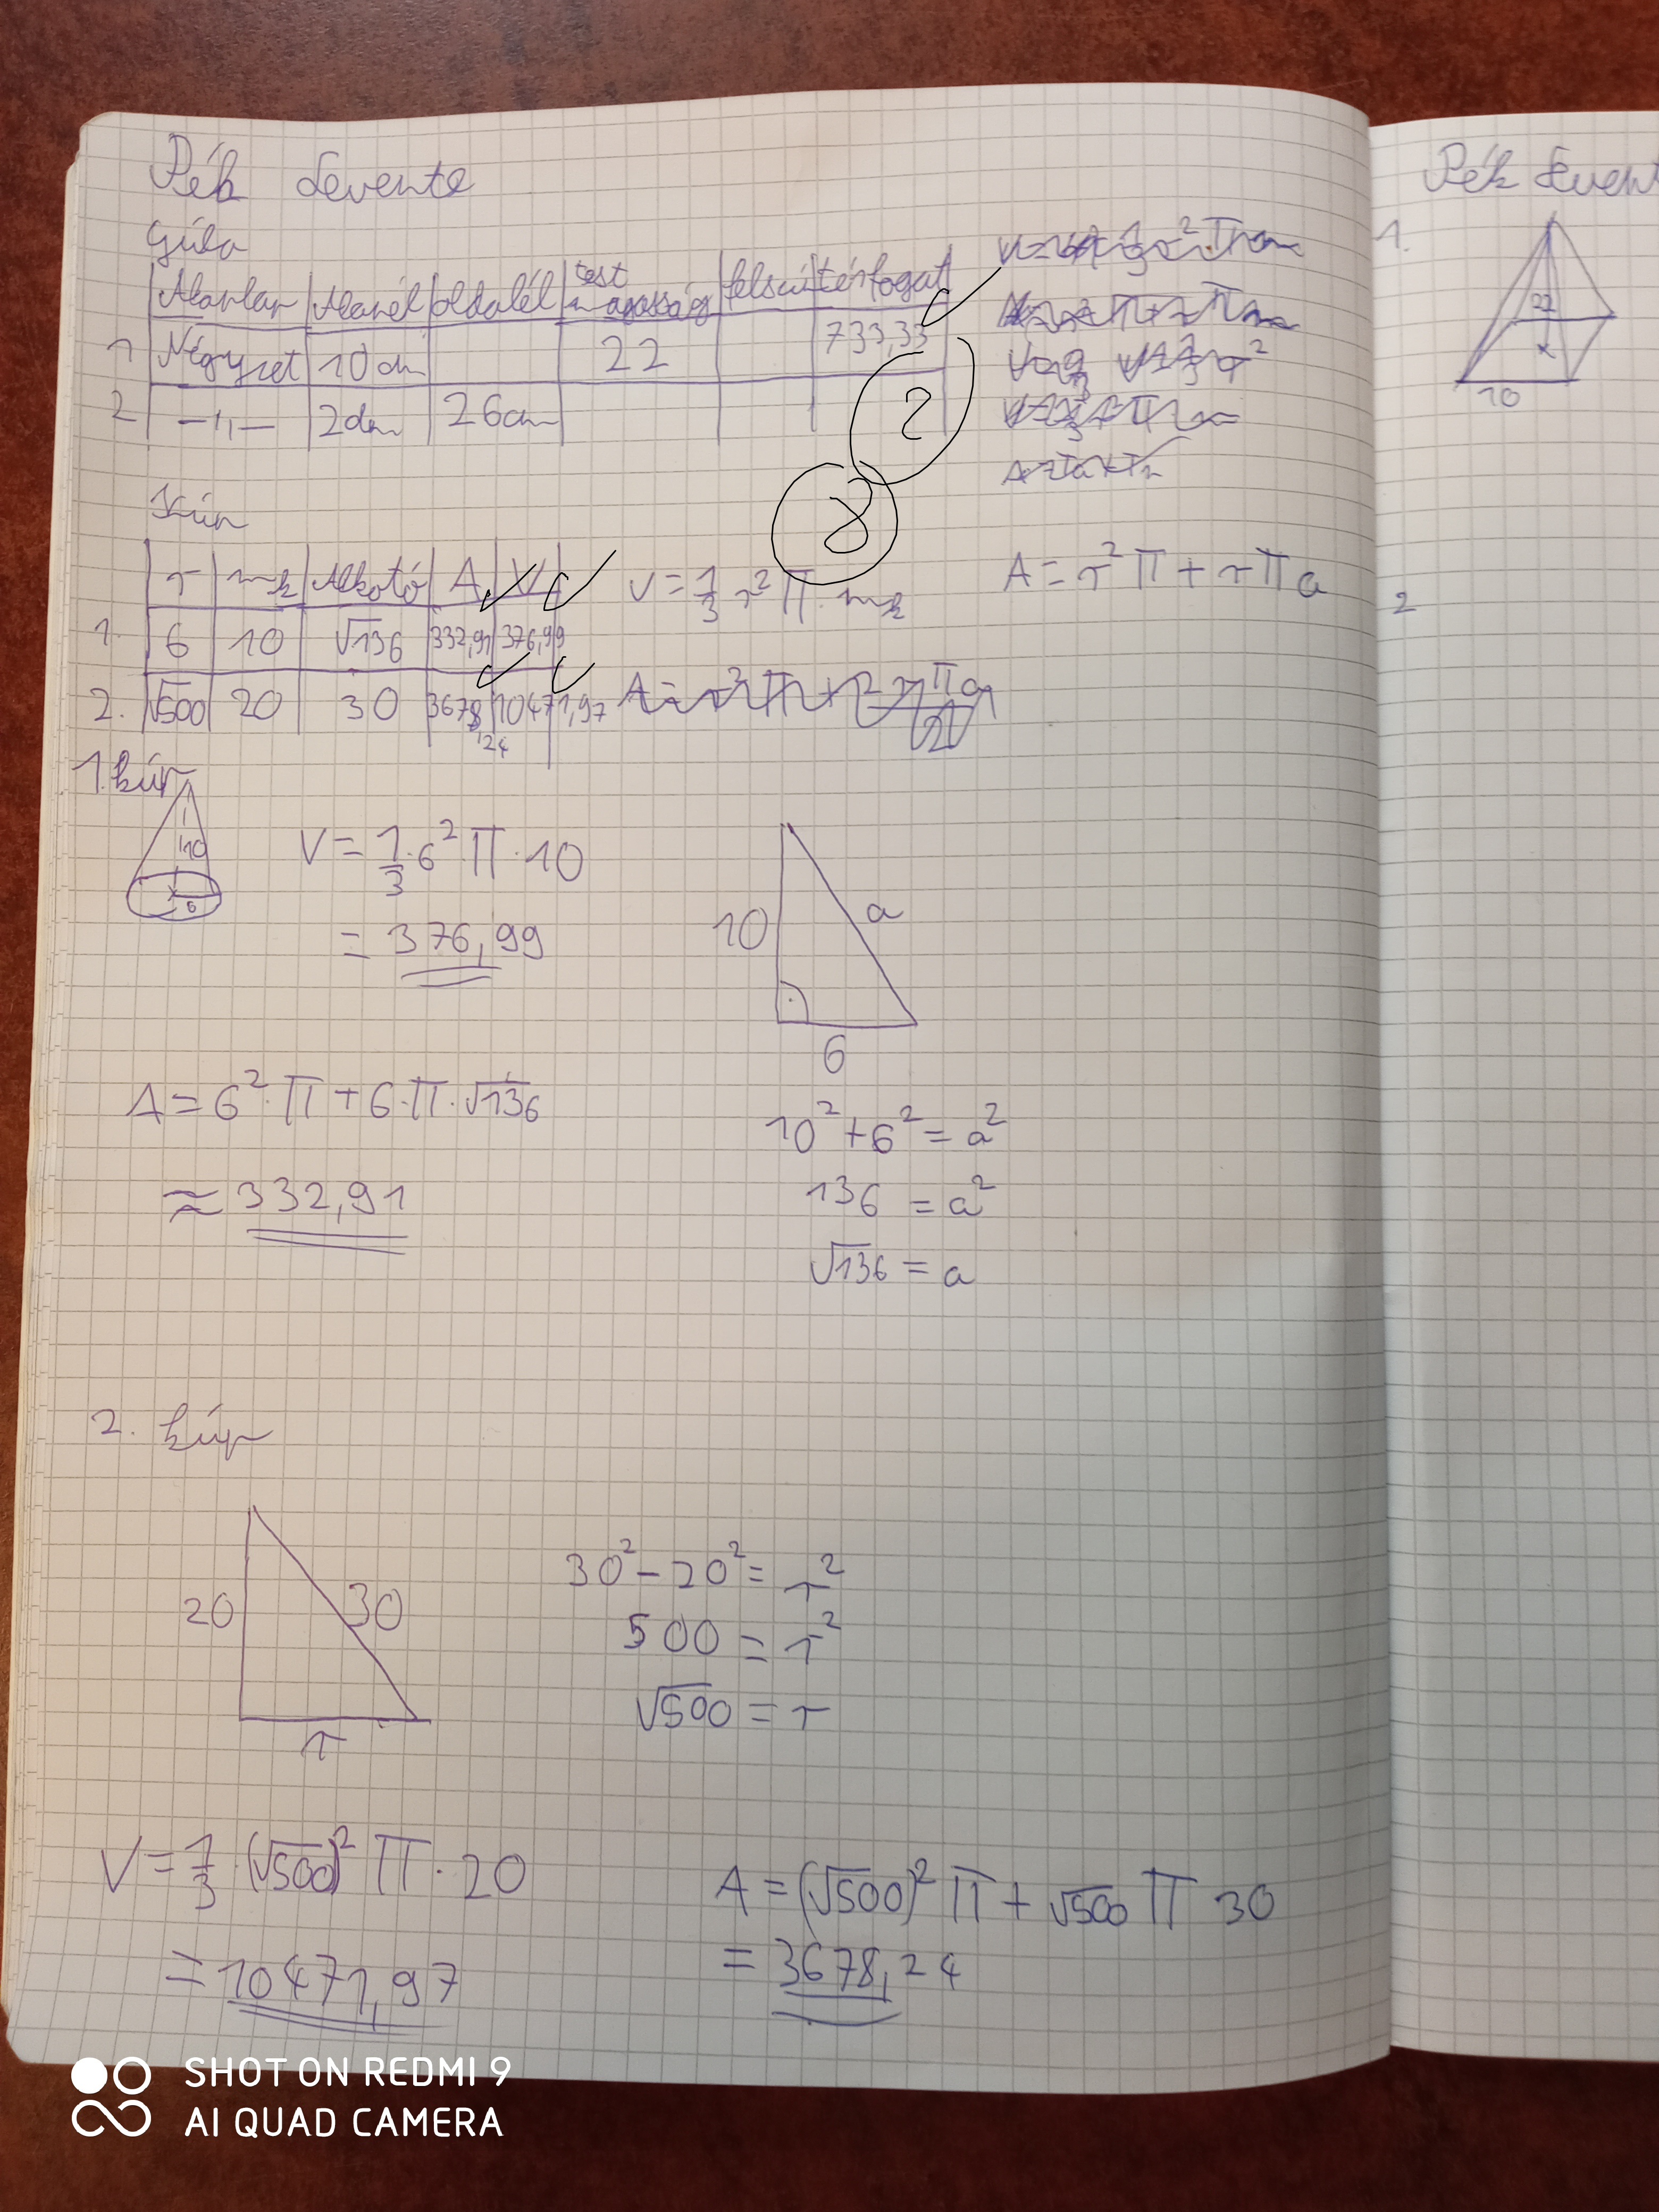 Pék Levente
Gúla
Alaplap Alapél oldalél test magasság felszín térfogat
1 Négyzet 10 cm 22 733,33
2 —,,— 2dm 26cm
2
8
Kúp
r mk Alkotó A V
1. 6 10 √136 332,91 376,99
2. √500 20 30 3678,24 10471,97
V = 1/3 r² π · mk
A = r² π + r π a
1. kúp
10
6
V = 1/3 · 6² π · 10
= 376,99
10
a
6
A = 6² · π + 6 · π · √136
≈ 332,91
10² + 6² = a²
136 = a²
√136 = a
2. kúp
20
30
r
30² - 20² = r²
500 = r²
√500 = r
V = 1/3 · (√500)² π · 20
= 10471,97
A = (√500)² π + √500 π 30
= 3678,24
Pék Levent
1.
22
x
10
2
SHOT ON REDMI 9
AI QUAD CAMERA